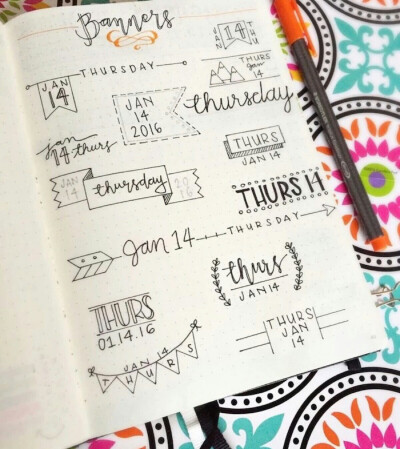 Banners
THURSDAY
JAN
14
JAN
14
2016
JAN
14
THU
THURS
Jan
14
thursday
Jan
14 thurs
THURS
JAN 14
JAN
14
thursday
20
16
THURS 14
Jan 14
THURSDAY
thurs
JAN 14
THURS
01.14.16
THURS
JAN
14
JAN 14
THURS